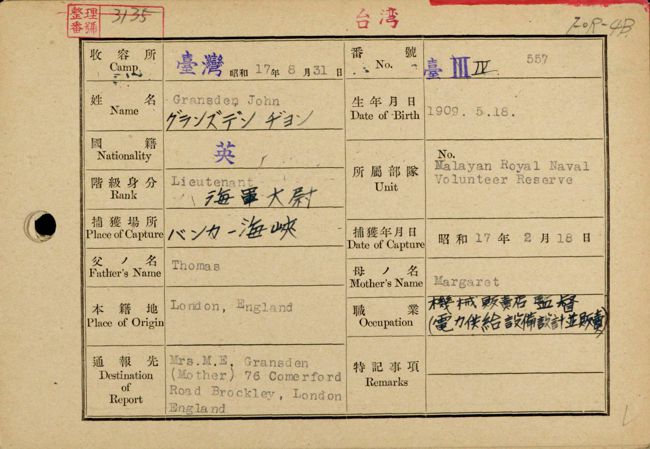 整理番號 3135
台湾
収容所 Camp 臺灣 昭和17年8月31日
番號 No. 臺 III IV 557
姓名 Name Gransden John
グランズデン ヂョン
生年月日 Date of Birth 1909. 5.18.
國籍 Nationality 英
所屬部隊 Unit No.
Malayan Royal Naval
Volunteer Reserve
階級身分 Rank Lieutenant
海軍大尉
捕獲場所 Place of Capture バンカー海峽
捕獲年月日 Date of Capture 昭和17年2月18日
父ノ名 Father's Name Thomas
母ノ名 Mother's Name Margaret
本籍地 Place of Origin London, England
職業 Occupation 機械販賣店監督
(電力供給設備設計並販賣)
通報先 Destination of Report Mrs.M.E. Gransden
(Mother) 76 Comerford
Road Brockley, London
England
特記事項 Remarks